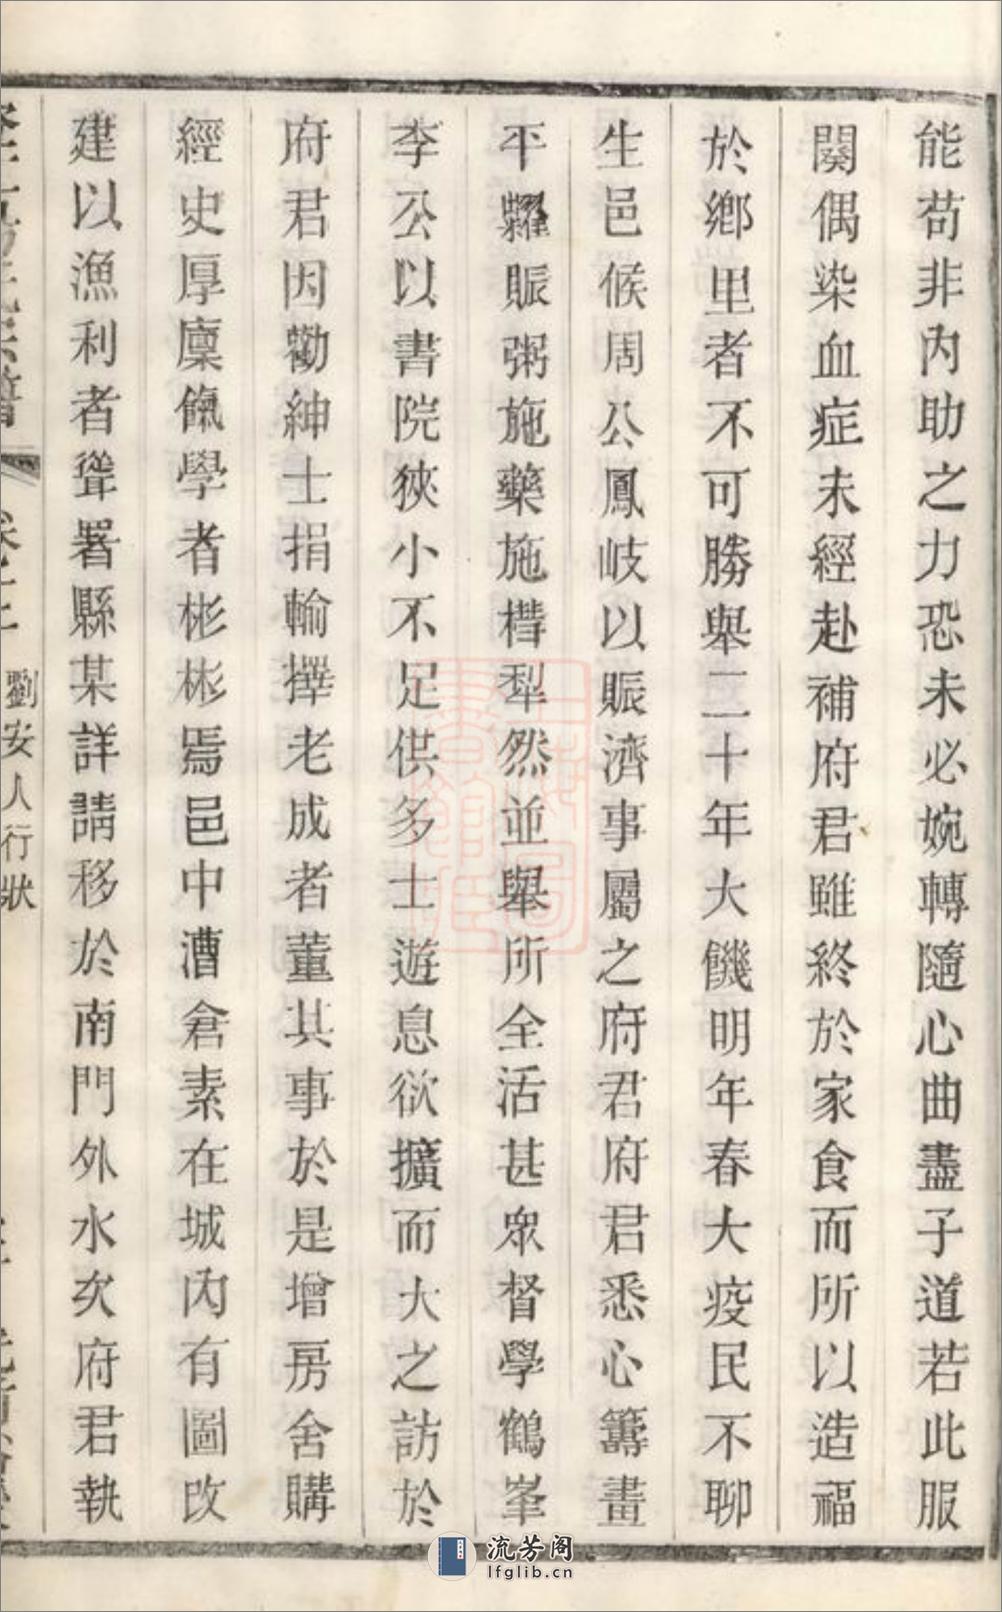 能苟非內助之力恐未必婉轉隨心曲盡子道若此服
闋偶染血症未經赴補府君雖終於家食而所以造福
於鄉里者不可勝舉二十年大饑明年春大疫民不聊
生邑候周公鳳岐以賑濟事屬之府君府君悉心籌畫
平糶賑粥施藥施槥犁然並舉所全活甚眾督學鶴峯
李公以書院狹小不足供多士遊息欲擴而大之訪於
府君因勸紳士捐輸擇老成者董其事於是增房舍購
經史厚廩餼學者彬彬焉邑中漕倉素在城內有圖改
建以漁利者聳署縣某詳請移於南門外水次府君執
劉安人行狀
流芳阁
lfglib.cn